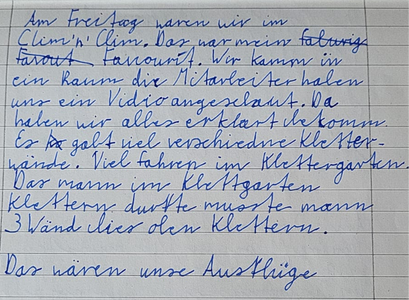 Am Freitag waren wir im
Clim'n' Clim. Das war mein
Favourit. Wir kamm in
ein Raum die Mitarbeiter haben
uns ein Vidio angeschaut. Da
haben wir alles erklärt bekomm.
Es gabt viel verschiedne Kletter-
wände. Viel fahren im Klettergarten.
Das mann im Klettgarten
Klettern durfte musste mann
3 Wänd klettern.

Das wären unse Ausflüge